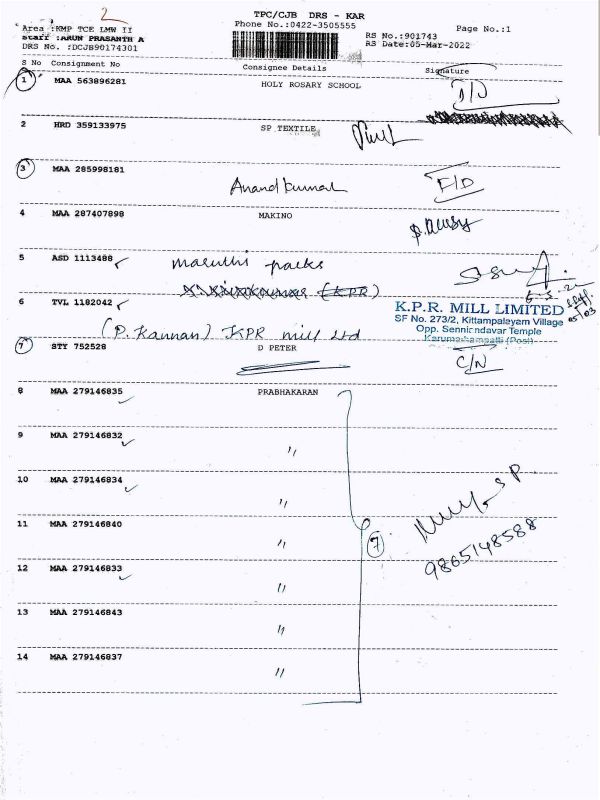 2
TPC/CJB DRS - KAR
Area :KMP TCE LMW II
Phone No.:0422-3505555
Page No.:1
Staff :ARUN PRASANTH A
RS No.:901743
DRS No. :DCJB90174301
RS Date:05-Mar-2022
S No Consignment No Consignee Details Signature
1 MAA 563896281 HOLY ROSARY SCHOOL
2 HRD 359133975 SP TEXTILE
3 MAA 285998181
Anandkumar
4 MAA 287407898 MAKINO
5 ASD 1113488 maruthi packs
(KPR)
6 TVL 1182042
K.P.R. MILL LIMITED
SF No. 273/2, Kittampalayam Village
Opp. Sennicndavar Temple
(P. Kannan) KPR mill Ltd
7 STY 752528 D PETER
C/N
8 MAA 279146835 PRABHAKARAN
9 MAA 279146832 "
10 MAA 279146834 "
11 MAA 279146840 "
7
9865148588
12 MAA 279146833 "
13 MAA 279146843 "
14 MAA 279146837 "